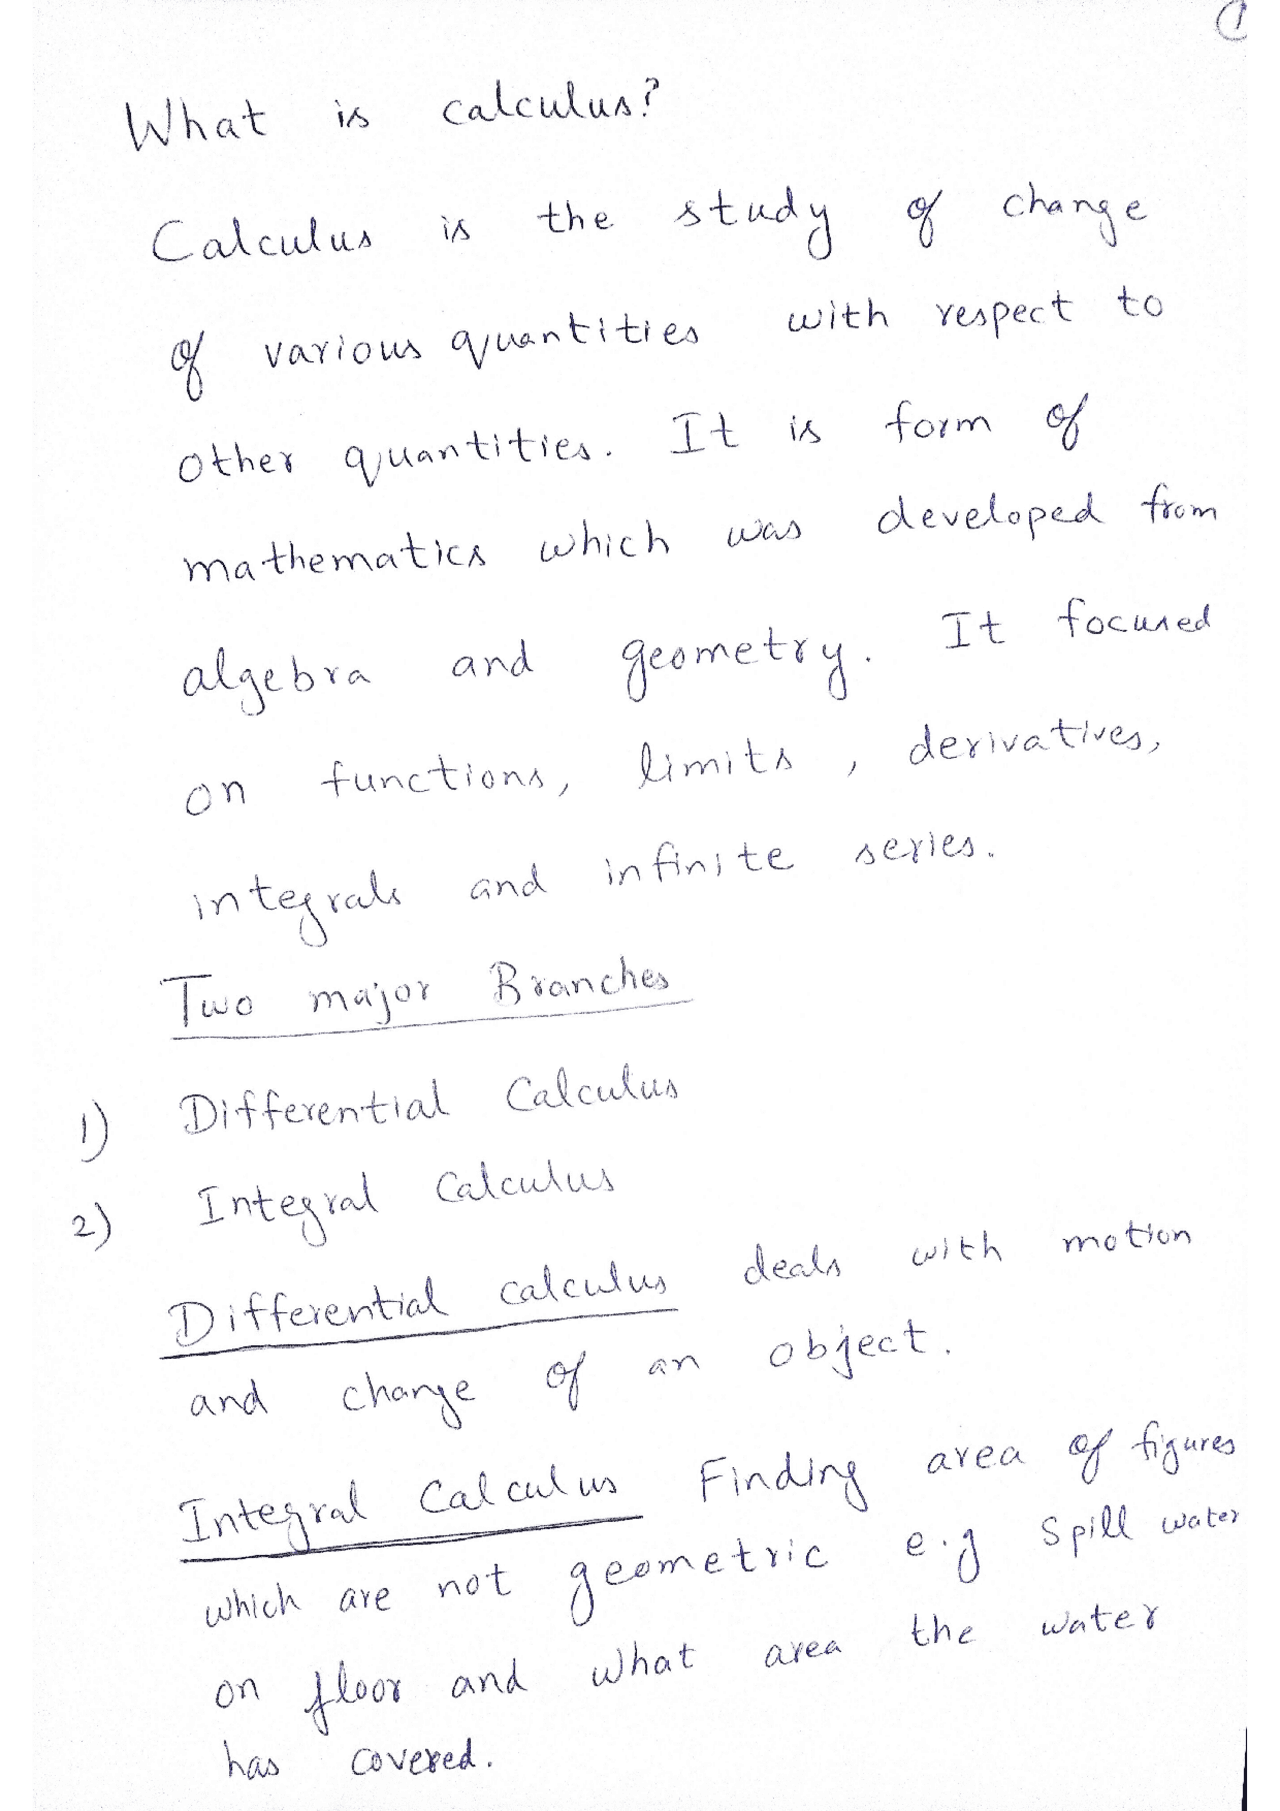 1
What is calculus?
Calculus is the study of change
of various quantities with respect to
other quantities. It is form of
mathematics which was developed from
algebra and geometry. It focused
on functions, limits, derivatives,
integrals and infinite series.
Two major Branches
1) Differential Calculus
2) Integral Calculus
Differential calculus deals with motion
and change of an object.
Integral Calculus Finding area of figures
which are not geometric e.g Spill water
on floor and what area the water
has covered.